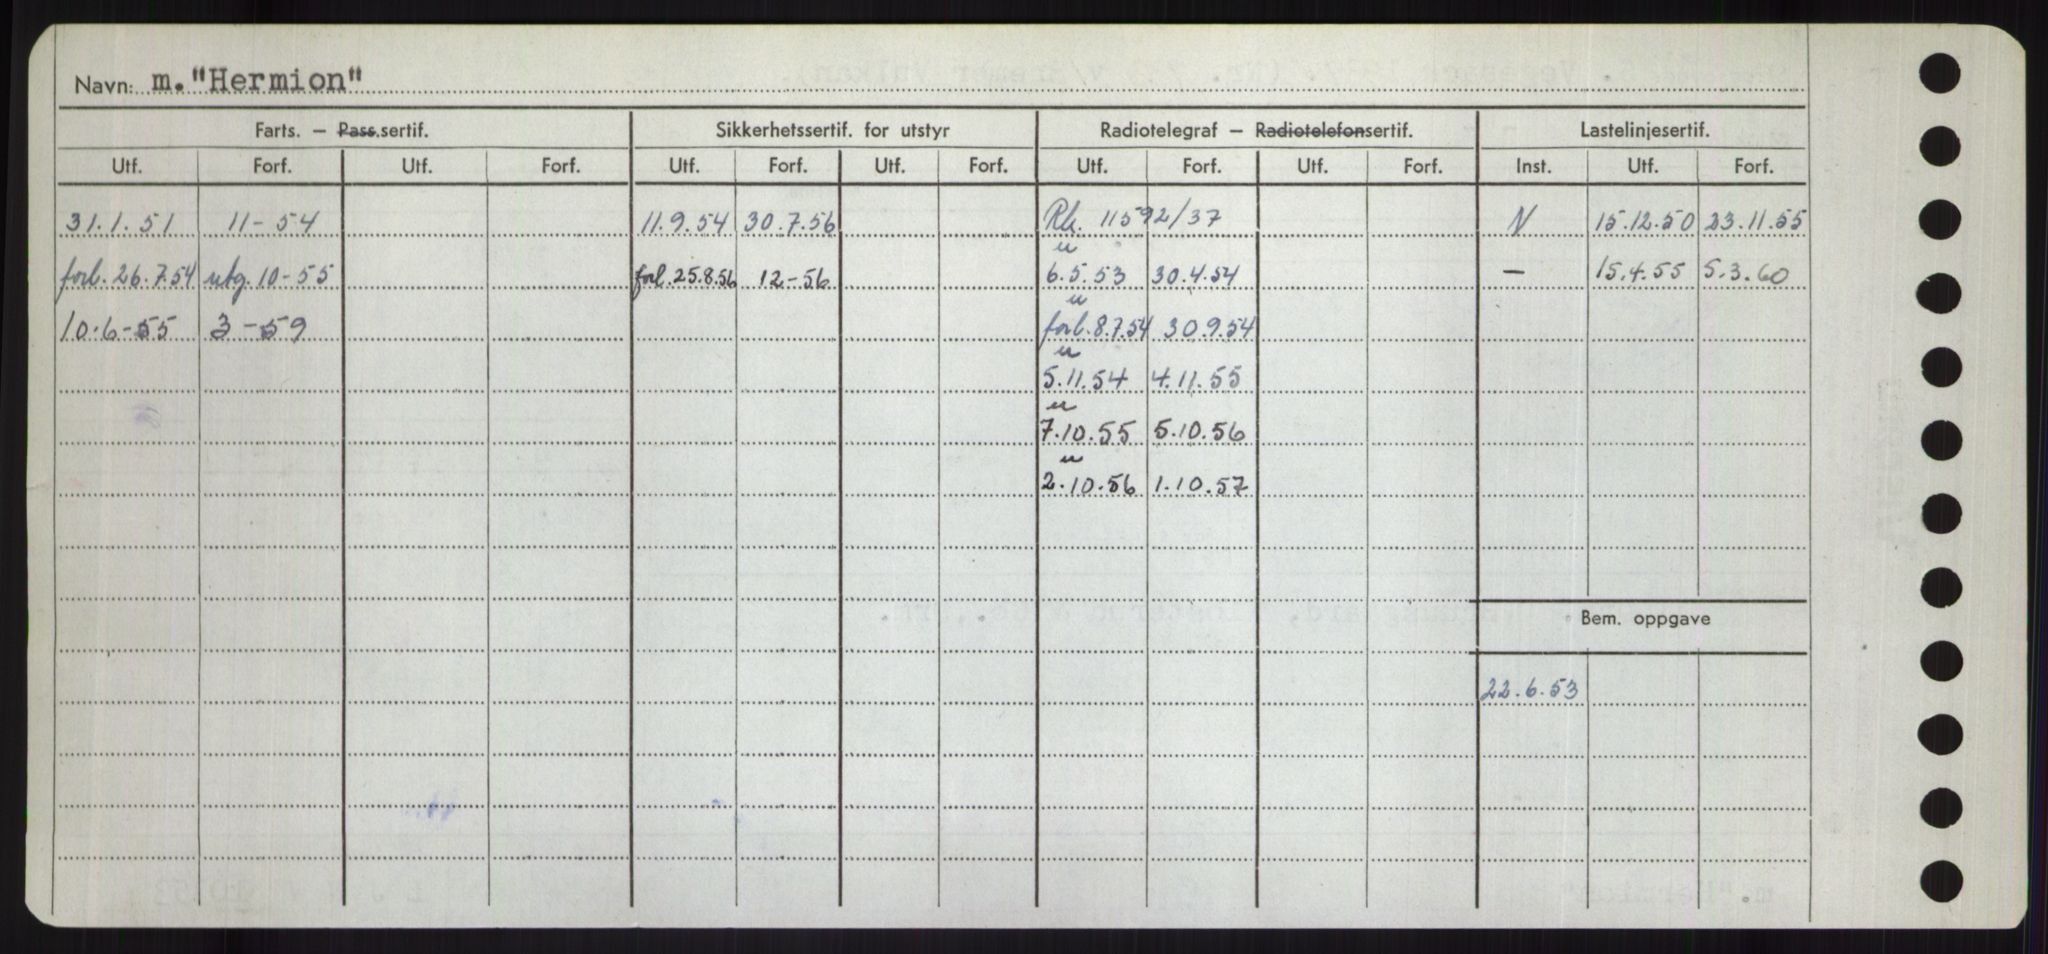 Navn: m. "Hermion"
Farts. – Pass.sertif. Sikkerhetssertif. for utstyr Radiotelegraf – Radiotelefonsertif. Lastelinjesertif.
Utf. Forf. Utf. Forf. Utf. Forf. Utf. Forf. Utf. Forf. Utf. Forf. Inst. Utf. Forf.
31.1.51 11-54 11.9.54 30.7.56 Rk. 11592/37 N 15.12.50 23.11.55
u
forl. 26.7.54 utg. 10-55 forl. 25.8.56 12-56 6.5.53 30.4.54 — 15.4.55 5.3.60
u
10.6-55 3-59 forl. 8.7.54 30.9.54
u
5.11.54 4.11.55
u
7.10.55 5.10.56
u
2.10.56 1.10.57
Bem. oppgave
22.6.53